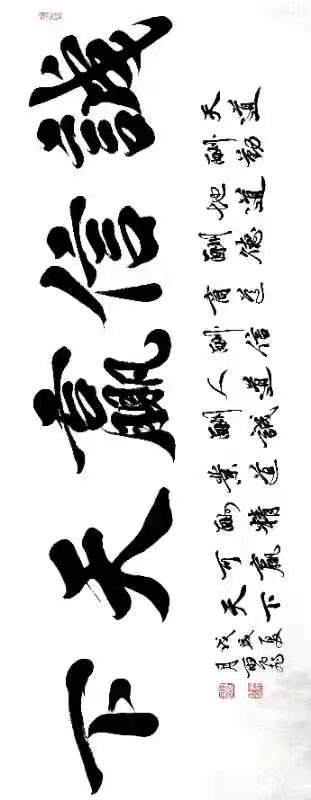 誠信贏天下
天道
酬勤
地道
酬德
商道
酬信
人道
酬誠
業道
酬精
可贏
天下
戊戌夏
月